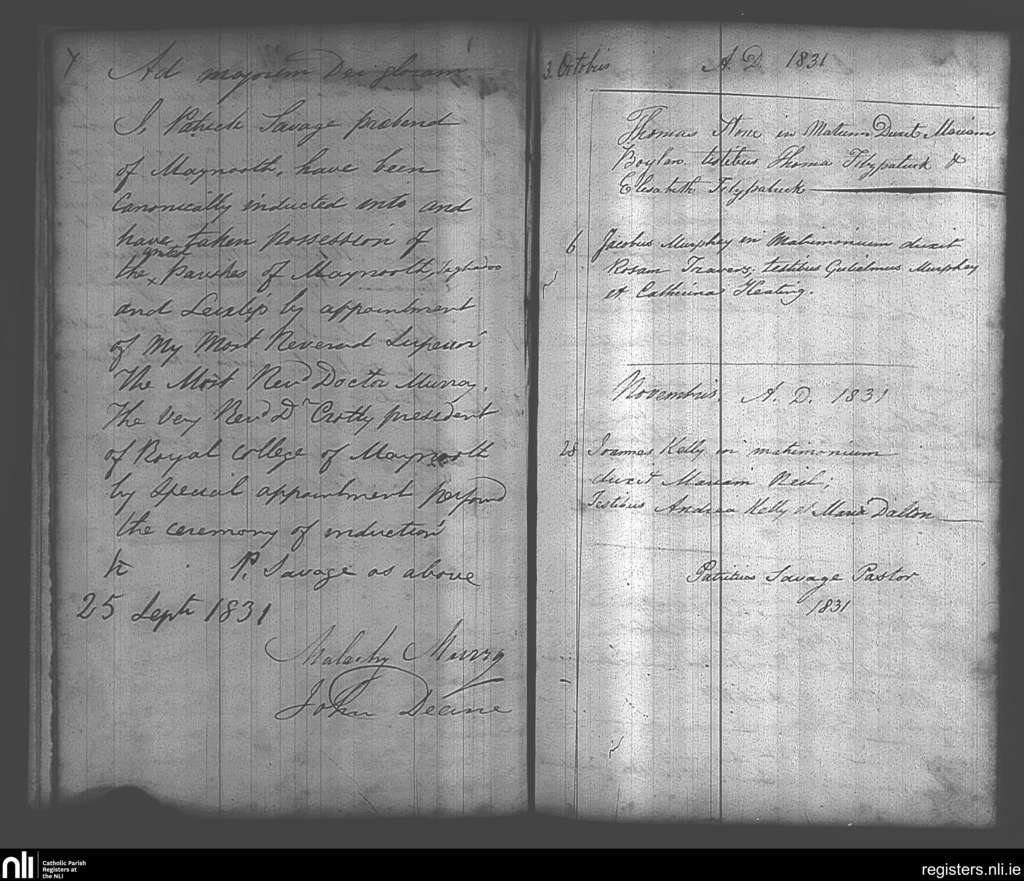 Ad majorem Dei gloriam
I, Patrick Savage prebend
of Maynooth, have been
Canonically inducted into and
have taken possession of
the united parishes of Maynooth, Taghadoo
and Leixlip by appointment
of My Most Reverend Superior
The Most Revd Doctor Murray.
The Very Revd Dr Crotty president
of Royal College of Maynooth
by special appointment performd
the ceremony of induction
P. Savage as above
25 Sept 1831
Malachy Murry
John Deane
3. Octobris A. D. 1831
Thomas in Matrim Duxit Mariam
Boylan testibus Thoma Fitzpatrick &
Elisabeth Fitzpatrick
6 Jacobus Murphey in Matrimonium duxit
Rosam Travers, testibus Gulielmus Murphey
et Catherina Keating.
Novembris, A. D. 1831
28 Joannes Kelly in matrimonium
duxit Mariam Neil;
Testibus Andrea Kelly et Maria Dalton
Patritius Savage Pastor
1831
nli
Catholic Parish
Registers at
the NLI
registers.nli.ie